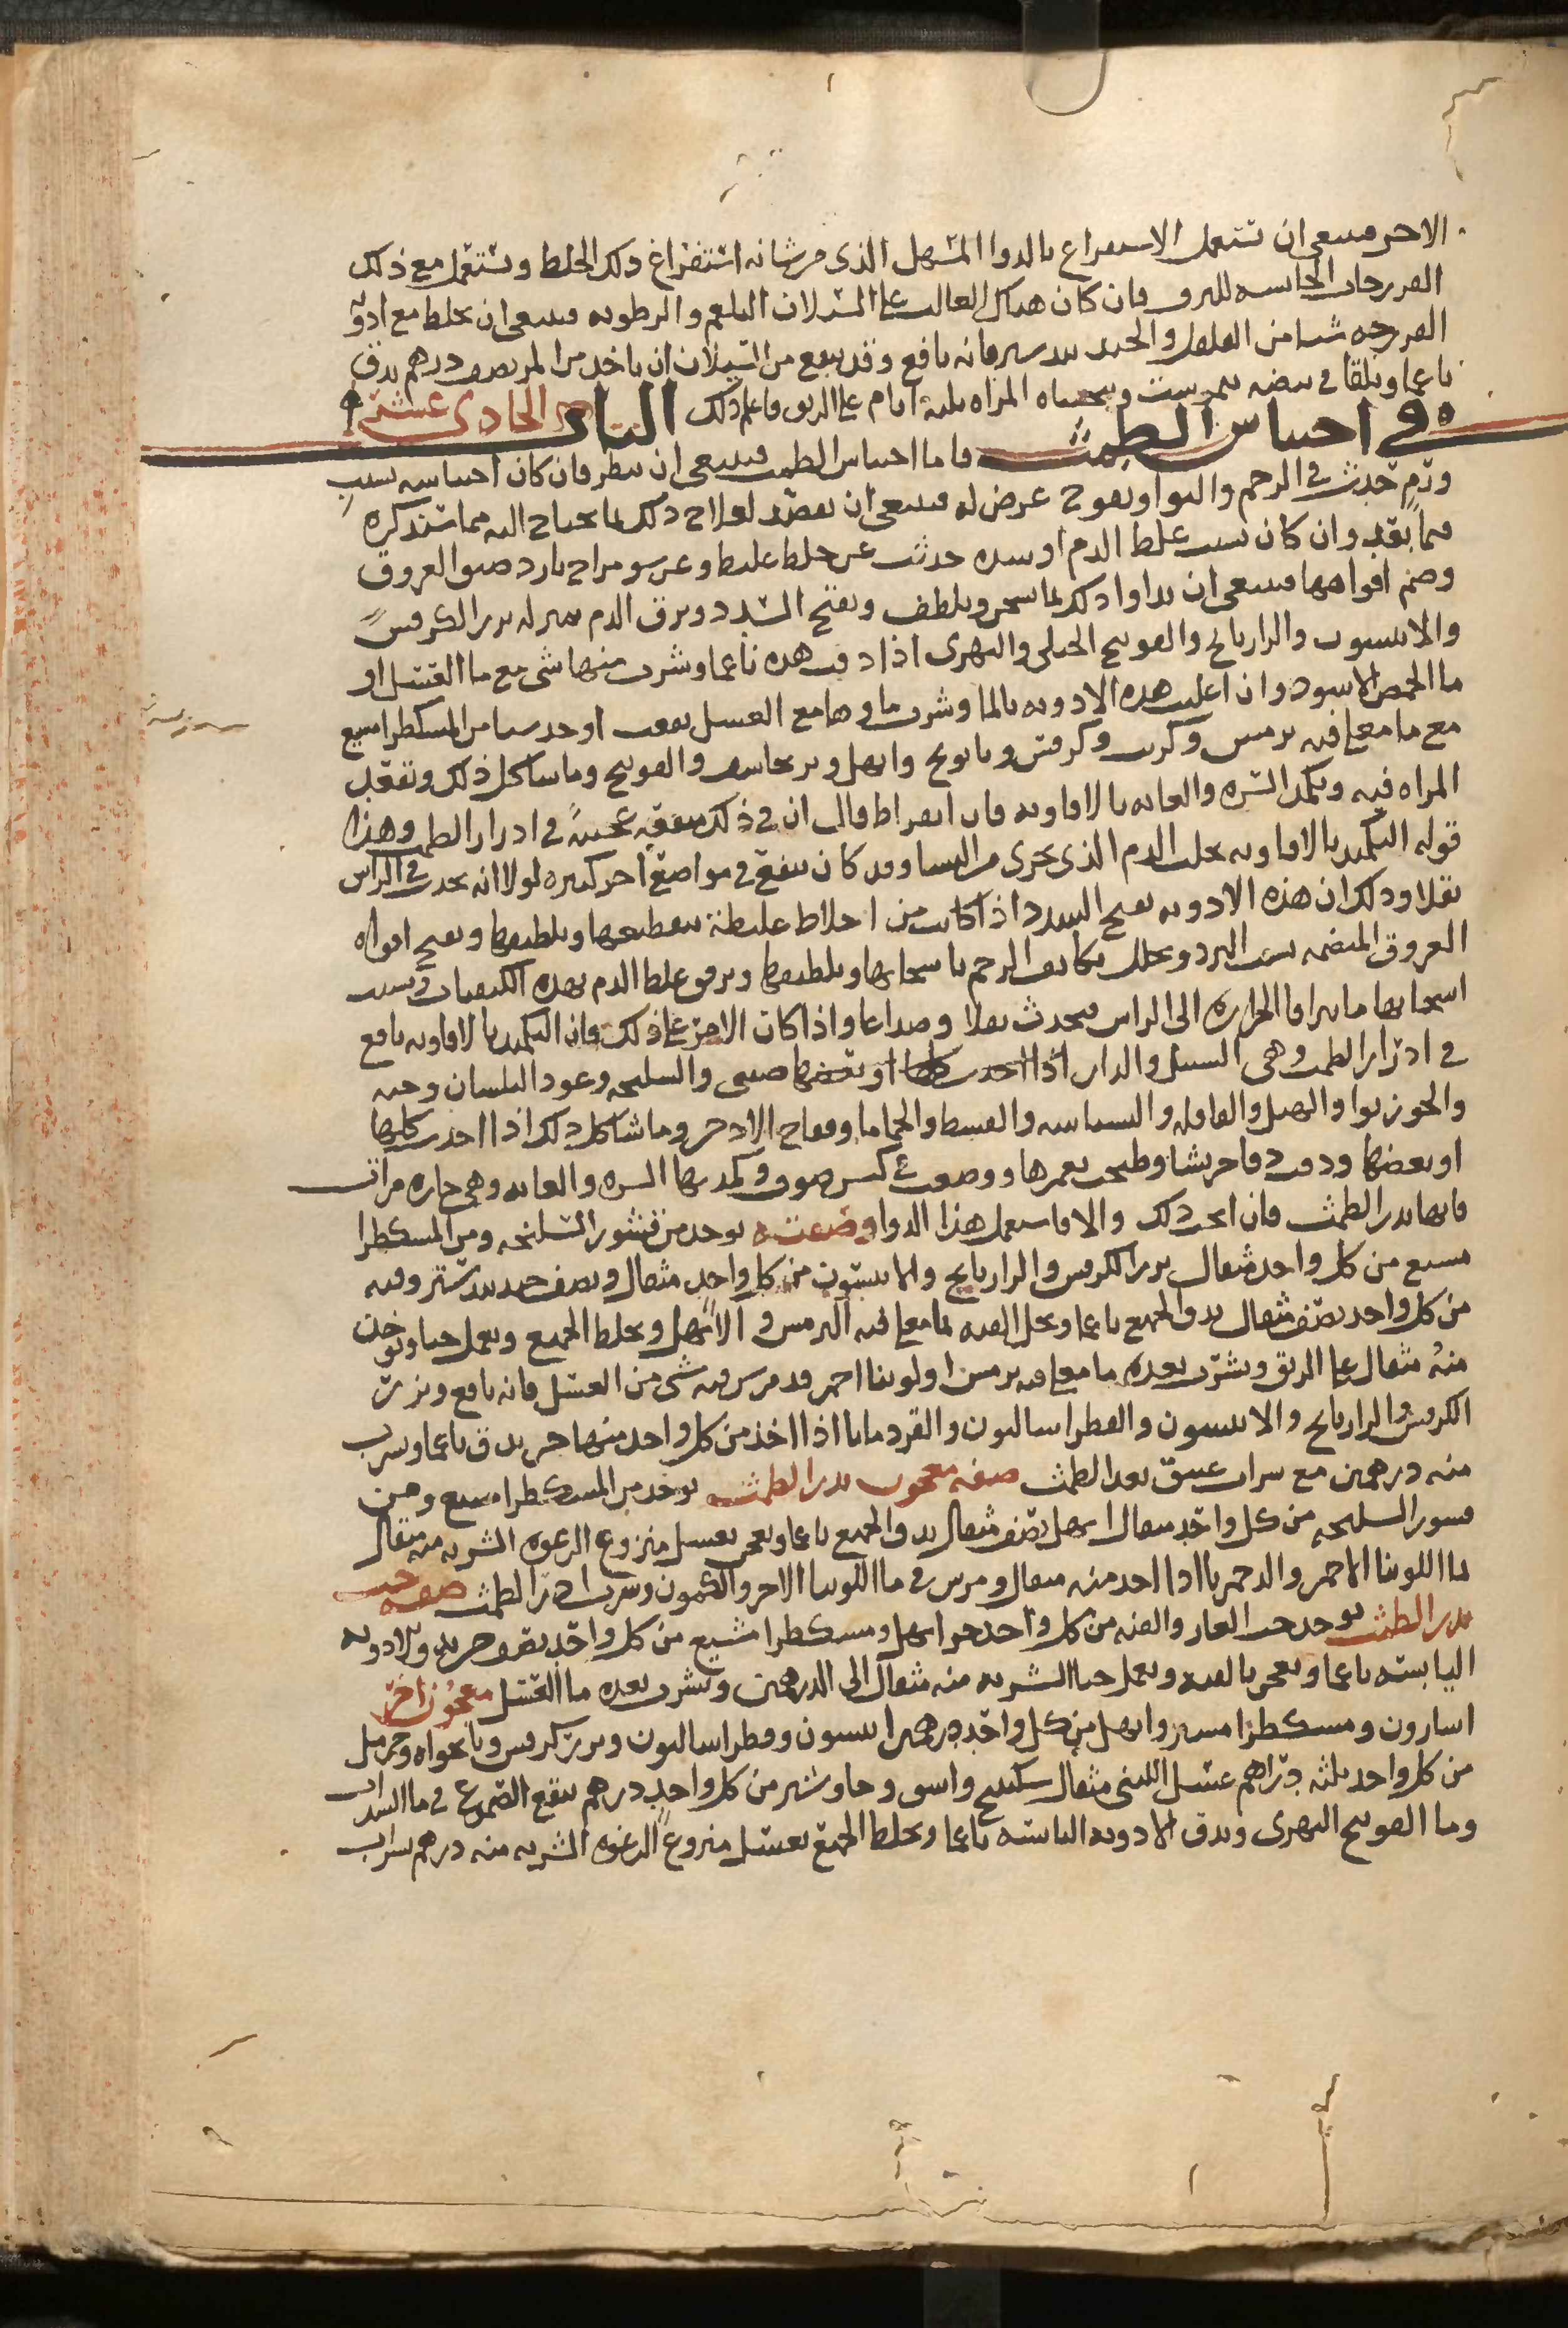 الاخر فينبغي ان تستعمل الاستفراغ بالدوا المسهل الذي من شانه استفراغ ذلك الخلط وتستعمل مع ذلك
الفرزجات الحابسه للنزف فان كان هناك الغالب على السيلان البلغم والرطوبه فينبغي ان يخلط مع ادويه
الفرزجه شيا من الفلفل والجندبيدستر فانه نافع وقد ينفع من السيلان ان ياخذ من المر نصف درهم يدق
ناعما ويلقا في بيضه نيمرشت ويتحساه المراه ثلثة ايام على الريق فاعلم ذلك الباب الحادي عشر
في احتباس الطمث فاما احتباس الطمث فينبغي ان ينظر فان كان احتباسه بسبب
ورم حدث في الرحم والتوا وتعوج عرض له فينبغي ان يقصد لعلاج ذلك بما يحتاج اليه مما سنذكره
فيما بعد وان كان بسبب غلظ الدم او سده حدثت عن خلط غليظ وعن سو مزاج بارد ضيق العروق
وضم افواهها فينبغي ان يداوا ذلك بما يسخن ويلطف ويفتح السدد ويرق الدم بمنزله بزر الكرفس
والانيسون والرازيانج والفوتنج الجبلي والنهري اذا دقت هذه ناعما وشرب منها شي مع ما العسل او
ما الحمص الاسود وان اغليت هذه الادويه بالما وشرب ماوها مع العسل نفعت او خذ شيا من المسكطرامسيع
مع ما مغلي فيه ترمس وكرنب وكرفس وبابونج وابهل وبرنجاسف والفوتنج وما شاكل ذلك وتقعد
المراه فيه وتكمد السره والعانه بالافاويه فان ابقراط قال ان في ذلك منفعه عجيبة في ادرار الطمث وهذا
قوله التكميد بالافاويه يجلب الدم الذي يجري من النسا وقد كان ينفع في مواضع اخر كثيره لولا انه يحدث في الراس
ثقلا وذلك ان هذه الادويه تفتح السدد اذا كانت من اخلاط غليظة بتقطيعها وتلطيفها وتفتح افواه
العروق المنضمه بسبب البرد وتحلل تكاثف الرحم باسخانها وتلطيفها وترقق غلظ الدم بهذه الكيفيات وبسبب
اسخانها ما يتراقا الحراره الى الراس فيحدث ثقلا وصداعا واذا كان الامر على ذلك فان التكميد بالافاويه نافع
في ادرار الطمث وهي السنبل والدار اذا اخذت كلها او بعضها صيني والسليخه وعود البلسان وحبه
والجوزبوا والهيل والقاقله والبسباسه والقسط والحماما وفقاح الاذخر وما شاكل ذلك اذا اخذت كلها
او بعضها ودقت دقا جريشا وطبخت بغمرها ووضعت في كيس صوف وكمد بها السره والعانه وهي حاره مرات
فانها تدر الطمث فان انجب ذلك والا فاستعمل هذا الدوا وصفته يوخذ من قشور السليخه ومن المسكطرا
مسيع من كل واحد مثقال بزر الكرفس والرازيانج والانيسون من كل واحد مثقال ونصف جندبيدستر وقنه
من كل واحد نصف مثقال يدق الجميع ناعما وتحل القنه بما مغلي فيه الترمس والابهل ويخلط الجميع ويعمل حبا ويوخذ
منه مثقال على الريق ويشرب بعده ما مغلي فيه ترمس او لوبيا احمر قد مرس فيه شي من العسل فانه نافع وبزر
الكرفس والرازيانج والانيسون والفطراساليون والقردمانا اذا اخذ من كل واحد منها جزو يدق ناعما ويشرب
منه درهمين مع شراب عتيق بعد الطمث صفه معجون يدر الطمث يوخذ من المسكطرامسيع ومن
قشور السليخه من كل واحد مثقال ابهل نصف مثقال يدق الجميع ناعما ويعجن بعسل منزوع الرغوه الشربه منه مثقال
بما اللوبيا الاحمر والدحمرثا اذا اخذ منه مثقال ومرس في ما اللوبيا الاحمر والكمون وشرب ادر الطمث صفه حب
يدر الطمث يوخذ حب الغار والقنه من كل واحد جزو ابهل ومسكطرا مشيع من كل واحد نصف جزو يدق الادويه
اليابسه ناعما ويعجن بالقنه ويعمل حبا الشربه منه مثقال الى الدرهمين ويشرب بعده ما العسل معجون اخر
اسارون ومسكطرا مسيع وابهل من كل واحد درهمين انيسون وفطراساليون وبزر كرفس ونانخواه وحرمل
من كل واحد ثلثه دراهم عسل اللبني مثقال سكبينج واشق وجاوشير من كل واحد درهم ينقع الصموغ في ما السداب
وما الفوتنج النهري ويدق الادويه اليابسه ناعما ويخلط الجميع بعسل منزوع الرغوه الشربه منه درهم بشراب